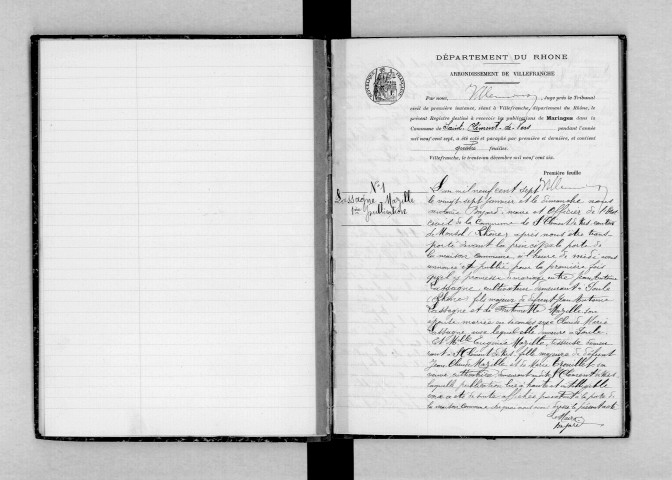 DÉPARTEMENT DU RHONE
ARRONDISSEMENT DE VILLEFRANCHE
Par nous, Juge près le Tribunal
civil de première instance, séant à Villefranche, département du Rhône, le
présent Registre destiné à recevoir les publications de Mariages dans la
Commune de Saint-Clément-de-Vers pendant l'année
mil neuf cent sept, a été coté et paraphé par première et dernière, et contient
quatre feuilles.
Villefranche, le trente-un décembre mil neuf cent six.
Première feuille
N° 1
Lassagne Mazille
1ère Publication
L'an mil neuf cent sept
le vingt sept janvier et le dimanche nous
maire et Officier de l'état
civil de la Commune de St Clément de Vers canton
de Monsol (Rhône) après nous être trans
porté devant la principale porte de
la maison commune, à l'heure de midi, avons
annoncé et publié pour la première fois
qu'il y a promesse de mariage entre Jean Antoine
Lassagne cultivateur demeurant à
(Rhône) fils majeur de défunt Jean Antoine
Lassagne et de Mazille, son
épouse mariée en secondes avec Claude
Lassagne avec laquelle demeure à
Et Mlle Eugénie Mazille, demeu
rant à St Clément de Vers, fille majeure de défunt
Jean Claude Mazille et de Marie Trouillet sa
veuve demeurant à St Clément de Vers
laquelle publication lue à haute et intelligible
voix a été de suite affichée à la porte de
la maison commune de quoi nous avons dressé le présent acte
Le Maire